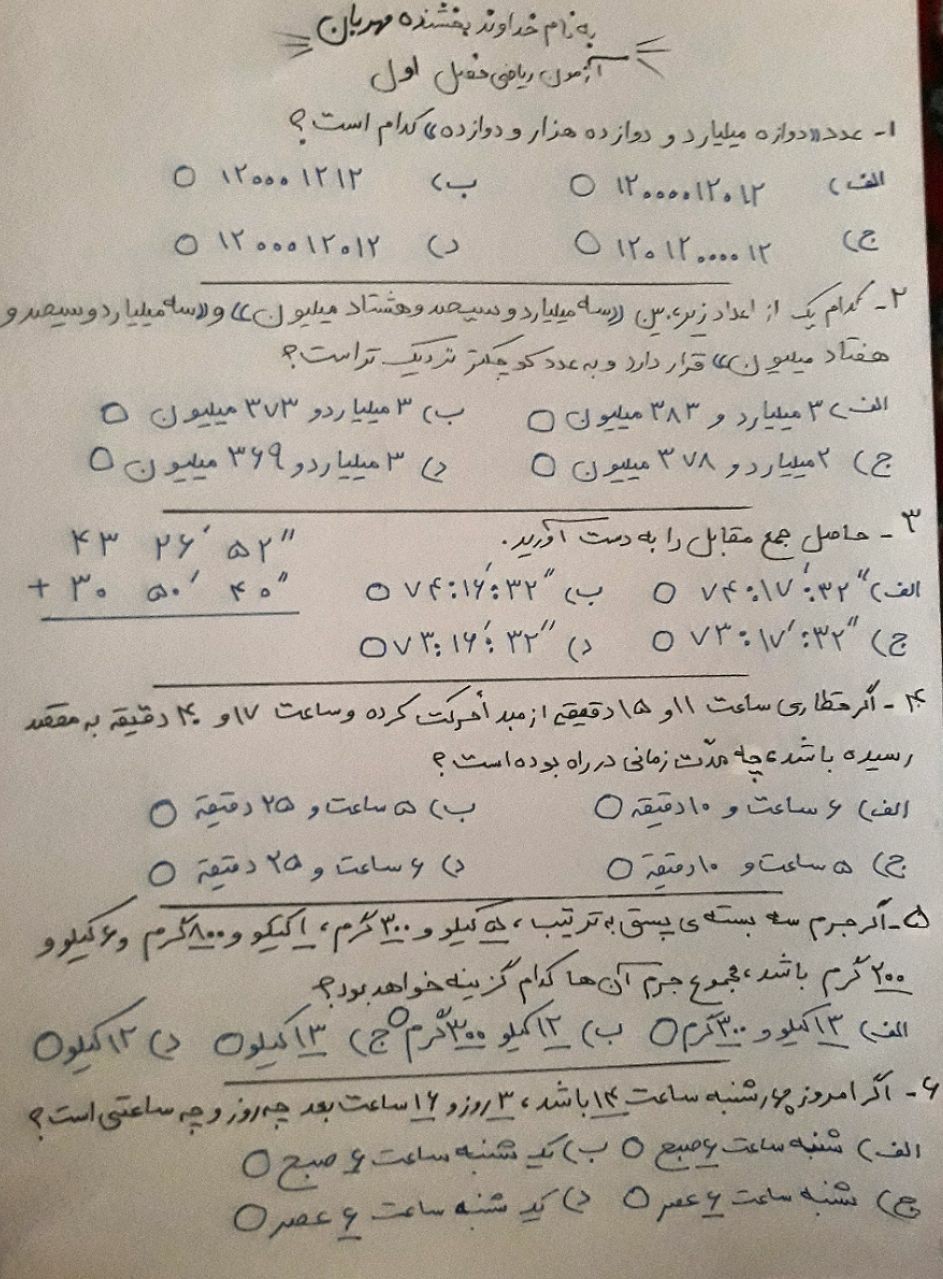 به نام خداوند بخشنده مهربان
آزمون ریاضی فصل اول
۱- عدد «دوازه میلیارد و دوازده هزار و دوازده» کدام است؟
الف) ۱۲۰۰۰۰۱۲۰۱۲ ب) ۱۲۰۰۰۱۲۱۲
ج) ۱۲۰۱۲۰۰۰۰۱۲ د) ۱۲۰۰۰۱۲۰۱۲
۲- کدام یک از اعداد زیر، بین «سه میلیارد و سیصد و هشتاد میلیون» و «سه میلیارد و سیصد و
هفتاد میلیون» قرار دارد و به عدد کوچکتر نزدیک تر است؟
الف) ۳ میلیارد و ۳۸۳ میلیون ب) ۳ میلیارد و ۳۷۳ میلیون
ج) ۲ میلیارد و ۳۷۸ میلیون د) ۳ میلیارد و ۳۶۹ میلیون
۳- حاصل جمع مقابل را به دست آورید. ۴۳ ۲۶′ ۵۲″
+ ۳۰ ۵۰′ ۴۰″
الف) ۷۴:۱۷′:۳۲″ ب) ۷۴:۱۶′:۳۲″
ج) ۷۳:۱۷′:۳۲″ د) ۷۳:۱۶′:۳۲″
۴- اگر قطاری ساعت ۱۱ و ۱۵ دقیقه از مبدأ حرکت کرده و ساعت ۱۷ و ۴۰ دقیقه به مقصد
رسیده باشد، چه مدّت زمانی در راه بوده است؟
الف) ۶ ساعت و ۱۰ دقیقه ب) ۵ ساعت و ۲۵ دقیقه
ج) ۵ ساعت و ۱۰ دقیقه د) ۶ ساعت و ۲۵ دقیقه
۵- اگر جرم سه بسته ی پستی به ترتیب، ۵ کیلو و ۳۰۰ گرم، ۱ کیلو و ۸۰۰ گرم و ۶ کیلو و
۲۰۰ گرم باشد، مجموع جرم آن ها کدام گزینه خواهد بود؟
الف) ۱۳ کیلو و ۳۰۰ گرم ب) ۱۲ کیلو ۳۰۰ گرم ج) ۱۳ کیلو د) ۱۲ کیلو
۶- اگر امروز چهارشنبه ساعت ۱۴ باشد، ۳ روز و ۱۶ ساعت بعد چه روز و چه ساعتی است؟
الف) شنبه ساعت ۶ صبح ب) یک شنبه ساعت ۶ صبح
ج) شنبه ساعت ۶ عصر د) یک شنبه ساعت ۶ عصر